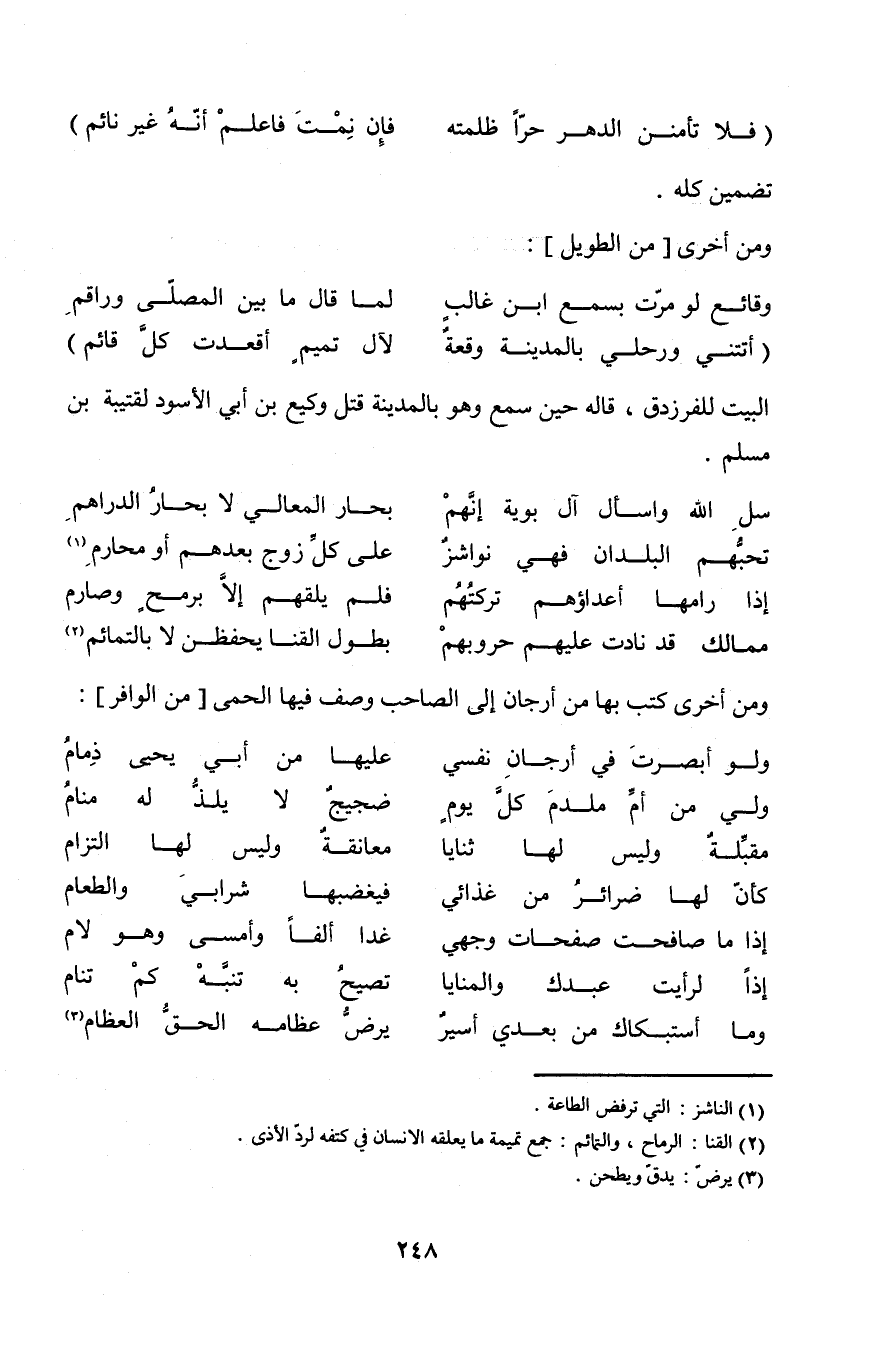 ( فـلا تأمنـن الدهـر حرّاً ظلمته فإِن نِمْـتَ فاعلـمْ أنّـهُ غير نائم )
تضمين كله .
ومن أخرى [ من الطويل ] :
وقائـع لو مرّت بسمـع ابـن غالبٍ لمـا قال ما بين المصلّـى وراقمِ
( أتتنـي ورحلـي بالمدينـة وقعةٌ لآل تميمٍ أقعـدت كلَّ قائم )
البيت للفرزدق ، قاله حين سمع وهو بالمدينة قتل وكيع بن أبي الأسود لقتيبة بن
مسلم .
سلِ الله واسـأل آل بوية إنَّهمْ بحـار المعالـي لا بحـارُ الدراهمِ
تحبُّهـم البلـدان فهـي نواشزٌ علـى كلِّ زوج بعدهـم أو محارمِ(١)
إذا رامهـا أعداؤهـم تركتُهُم فلـم يلقهـم إلاَّ برمـحٍ وصارم
ممـالك قد نادت عليهـم حروبهمْ بطـول القنـا يحفظـن لا بالتمائم(٢)
ومن أخرى كتب بها من أرجان إلى الصاحب وصف فيها الحمى [ من الوافر ] :
ولـو أبصـرتَ في أرجـانِ نفسي عليهـا من أبـي يحيى ذِمامُ
ولـي من أمِّ ملـدمَ كلَّ يومٍ ضجيجٌ لا يلـذُّ له منامُ
مقبِّلـةٌ وليس لهـا ثنايا معانقـةٌ وليس لهـا التزام
كأنّ لهـا ضرائـرُ من غذائي فيغضبهـا شرابـيَ والطعام
إذا ما صافحـت صفحـات وجهي غدا ألفـاً وأمسـى وهـو لام
إذاً لرأيت عبـدك والمنايا تصيحُ به تنبَّـهْ كمْ تنام
ومـا أستبـكاك من بعـدي أسيرٌ يرضُّ عظامـه الحـقُّ العظام(٣)
(١) الناشز : التي ترفض الطاعة .
(٢) القنا : الرماح ، والتمائم : جمع تميمة ما يعلقه الانسان في كتفه لردّ الأذى .
(٣) يرضّ : يدقّ ويطحن .
٢٤٨